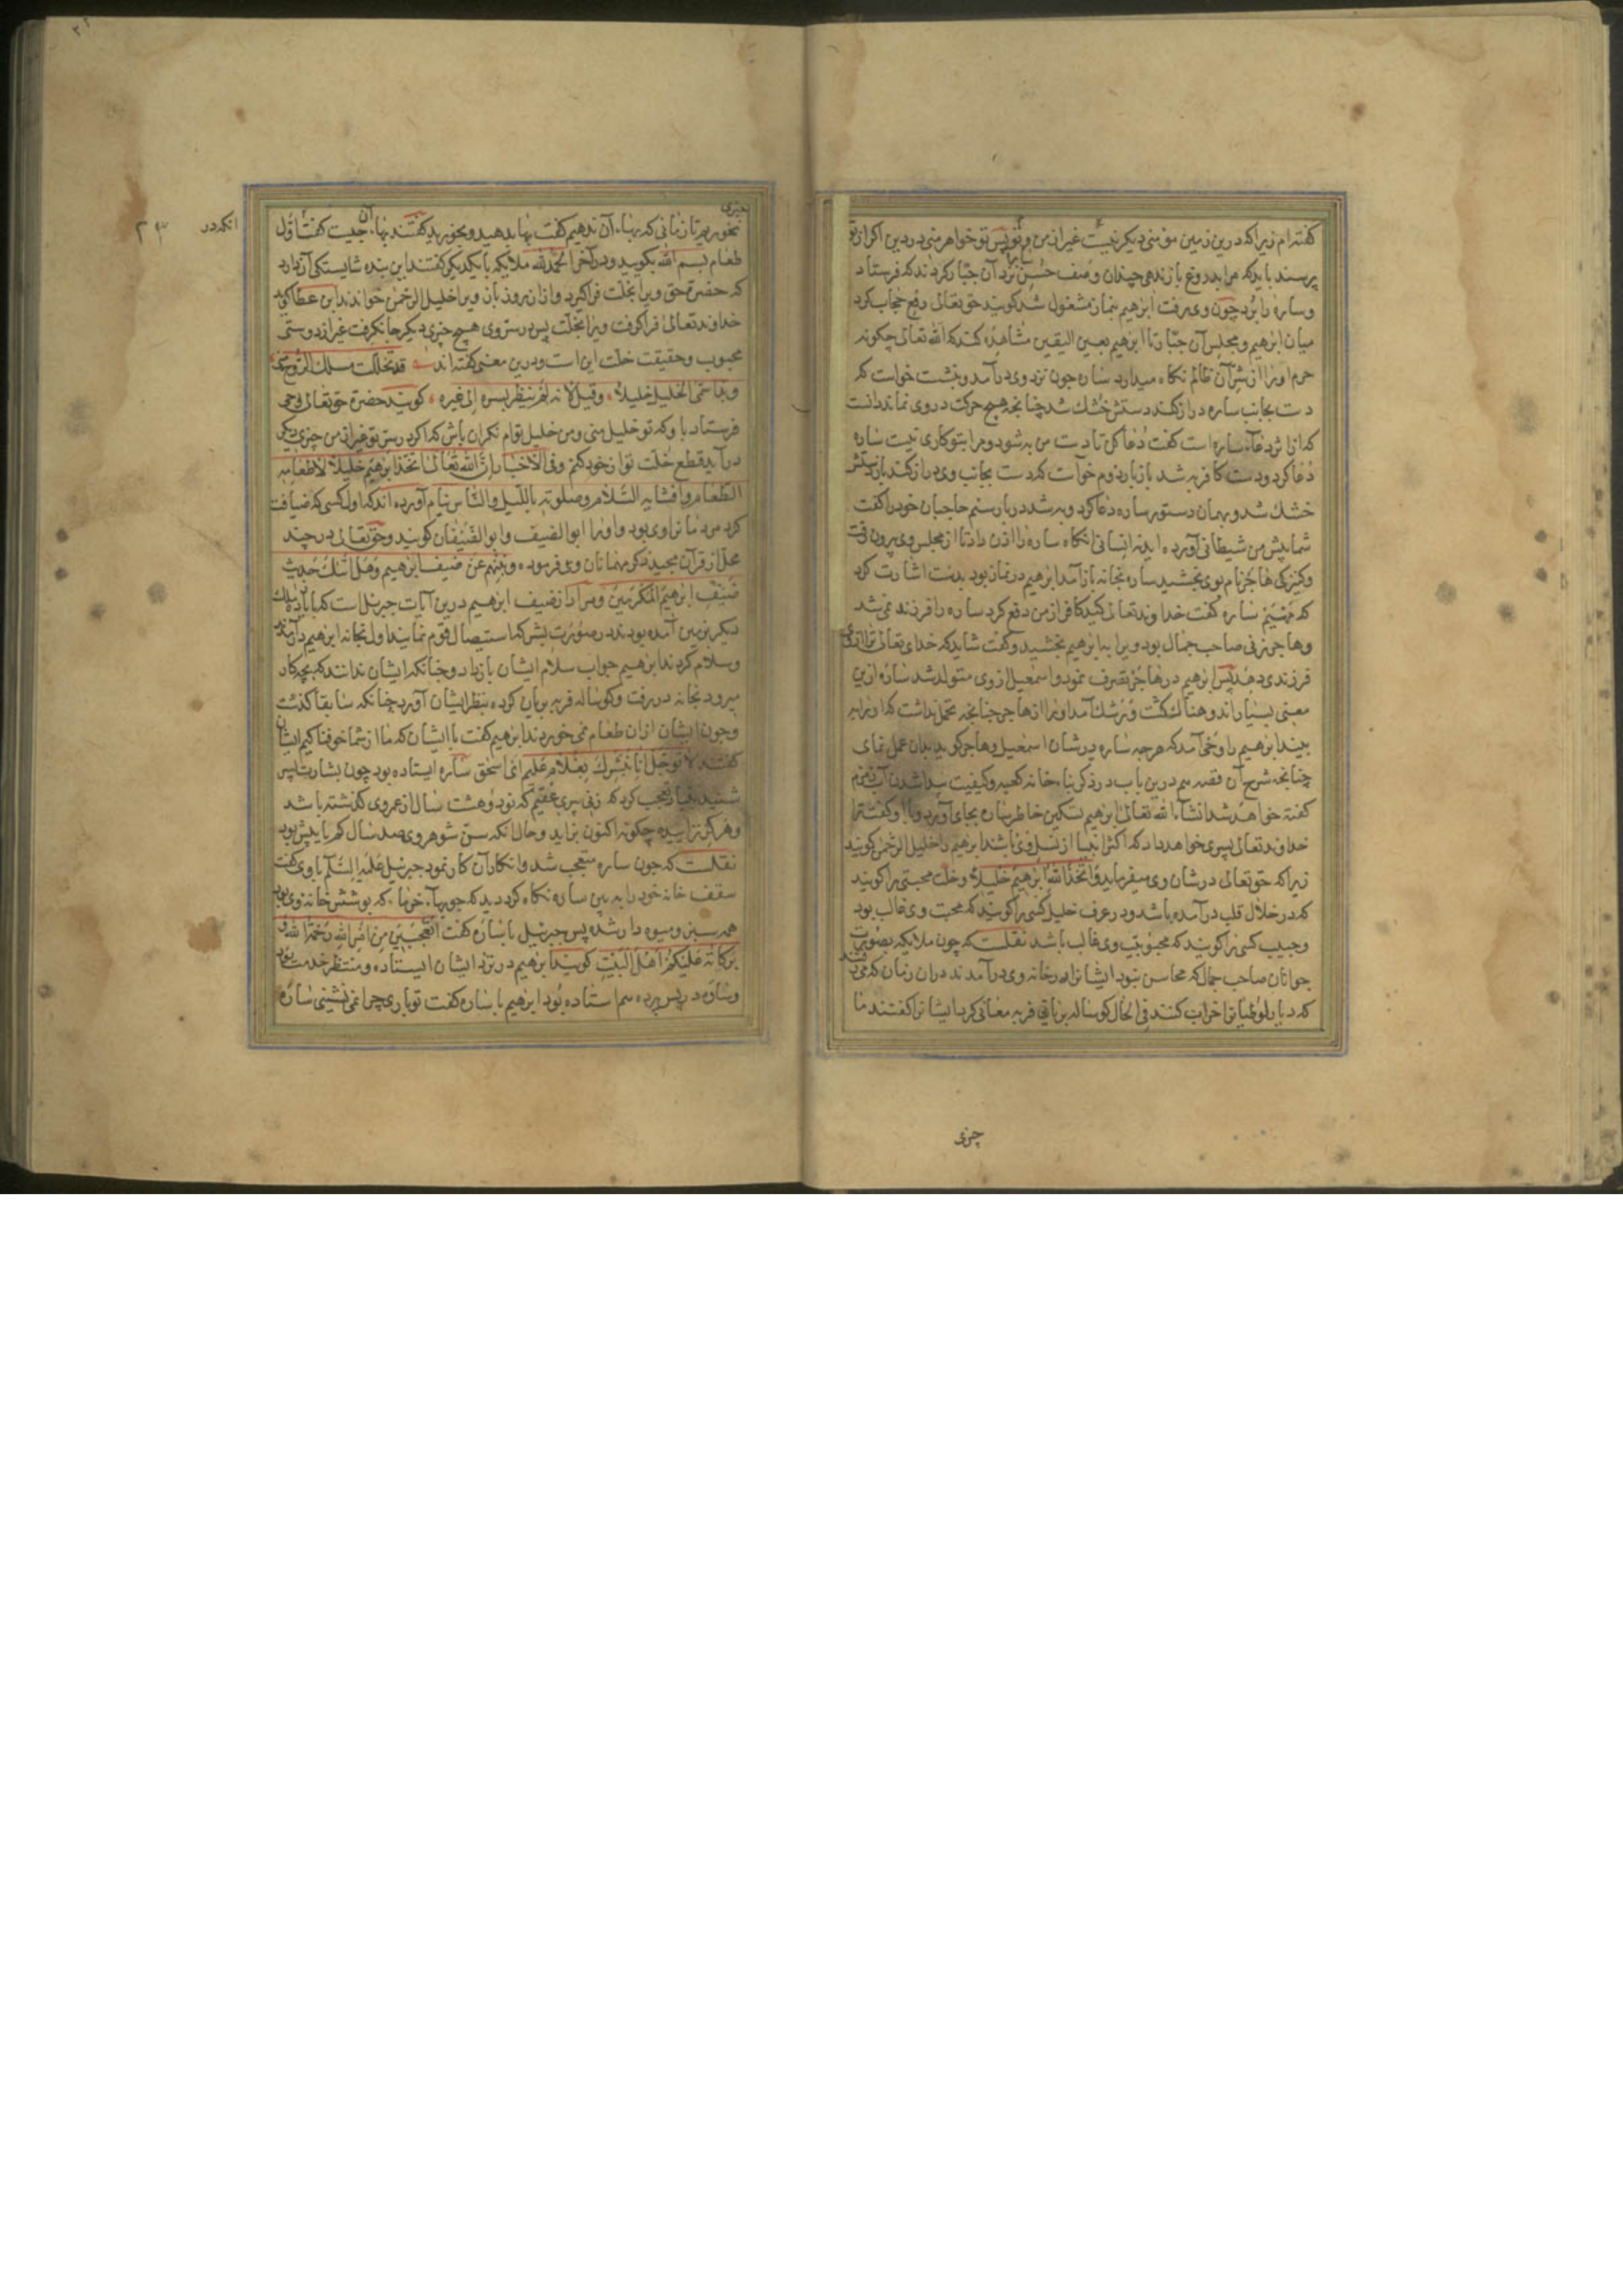 گفته‌ام زیرا که درین زمین مؤمنی دیگر نیست غیر از من و تو پس تو خواهر منی در دین اگر از تو
پرسند باید که مرا بدروغ باز ندهی چندان وصف حسن نزد آن جبار کردند که فرستاد
وساره را برد چون وی برفت ابرهیم بنماز مشغول شد کویند حق تعالی رفع حجاب کرد
میان ابرهیم و مجلس آن جبار تا ابرهیم بعین الیقین مشاهده کند که الله تعالی چکونه
حرم او را از شر آن ظالم نکاه میدارد ساره چون نزد وی درآمد و بنشست خواست که
دست بجانب ساره دراز کند دستش خشک شد چنانچه هیچ حرکت در وی نماند دانست
که از اثر دعاء ساره است گفت دعا کن تا دست من به شود و مرا بتو کاری نیست ساره
دعا کرد و دست کافر به شد باز بار دوم خواست که دست بجانب وی دراز کند باز دستش
خشک شد و بهمان دستور ساره دعا کرد و به شد در بار سیم حاجبان خود را گفت
شما پیش من شیطانی آورده اید نه انسانی انکاه ساره را اذن داد تا از مجلس وی بیرون رفت
وکنیزکی هاجر نام بوی بخشید ساره بخانه باز آمد ابرهیم در نماز بود بدست اشارت کرد
که مهیم ساره گفت خداوند تعالی کید کافر از من دفع کرد ساره را فرزند نمی شد
وهاجر زنی صاحب جمال بود ویرا به ابرهیم بخشید و گفت شاید که خدای تعالی ترا از وی
فرزندی دهد پس ابرهیم در هاجر تصرف نمود و اسمعیل از وی متولد شد ساره ازین
معنی بسیار اندوهناک گشت و برشک آمد او را از هاجر چنانچه تحمل نداشت که او را به
بیند ابرهیم را وحی آمد که هرچه ساره در شان اسمعیل و هاجر کوید بدان عمل نمای
چنانچه شرح آن قصه هم درین باب در ذکر بناء خانه کعبه و کیفیت پیدا شدن آب زمزم
گفته خواهد شد انشاء الله تعالی ابرهیم تسکین خاطر ساره بجای آورد و گفت ترا
خداوند تعالی پسری خواهد داد که اکثر انبیا از نسل وی باشد ابرهیم را خلیل الرحمن کویند
زیرا که حق تعالی در شان وی میفرماید وَاتَّخَذَ اللهُ اِبْرهیمَ خَلیلاً وخلت محبتی را کویند
که در خلال قلب درآمده باشد و در عرف خلیل کسی را کویند که محبت وی غالب بود
وحبیب کسی را کویند که محبوبیت وی غالب باشد نقلست که چون ملایکه بصورت
جوانان صاحب جمال که محاسن نبود ایشانرا در خانه وی درآمدند در ان زمان که می رفتند
که دیار لوطیانرا خراب کنند فی الحال کوساله بریانی فربه مهمانی کرد ایشانرا گفتند ما
چیزی
چیزی
نخوریم تا زمانی که بهاء آن ندهیم گفت بها بدهید و بخورید گفتند بهاء آن چیست گفت اول
طعام بسم الله بکویید و در آخر الحمدلله ملایکه با یکدیکر گفتند این بنده شایستکی آن دارد
که حضرت حق ویرا بخلت فراکیرد و از ان روز باز ویرا خلیل الرحمن خواندند ابن عطا کوید
خداوند تعالی فراکرفت ویرا بخلت پس در سر وی هیچ چیزی دیکر جا نکرفت غیر از دوستی
محبوب وحقیقت خلت این است و درین معنی گفته اند قد تخللت مسلک الروح منی
وبذا سمی الخلیل خلیلا، وقیل لانه لم ینظر بسره الی غیره، کویند حضرت حق تعالی وحی
فرستاد باو که تو خلیل منی و من خلیل توام نکران باش که اکر در سر تو غیر از من چیزی دیکر
درآید قطع خلت تو از خود کنم وفی الاخبار ان الله تعالی اتخذ ابرهیم خلیلا لاطعامه
الطعام وافشایه السلام وصلوته باللیل والناس نیام آورده اند که اول کسی که ضیافت
کرد مردمانرا وی بود و او را ابوالضیف و ابوالضیفان کویند و حق تعالی در چند
محل از قرآن مجید ذکر مهمانان وی فرموده ونبئهم عن ضیف ابرهیم وهل اتیک حدیث
ضیف ابرهیم المکرمین ومراد از ضیف ابرهیم درین آیات جبرئیل است که با یازده ملک
دیکر بزمین آمده بودند در صورت بشر که استیصال قوم نمایند اول بخانه ابرهیم درآمدند
وسلام کردند ابرهیم جواب سلام ایشان باز داد و چنانکه ایشان ندانند که بچه کار
میرود بخانه در رفت و کوساله فربه بریان کرده بنظر ایشان آورد چنانکه سابقا گذشت
وچون ایشان از ان طعام نمی خوردند ابرهیم گفت با ایشان که ما از شما خوفناکیم ایشان
گفتند لا توجل انا نبشرک بغلام علیم ای اسحق ساره ایستاده بود چون بشارت پسر
شنید بسیار تعجب کرد که زنی پیری عقیم که نود و هشت سال از عمر وی گذشته باشد
وهرکز نزاییده چکونه اکنون بزاید و حال آنکه سن شوهر وی صد سال کم یا بیش بود
نقلست که چون ساره متعجب شد و انکار آن کار نمود جبرئیل علیه السلام با وی گفت
سقف خانه خود را به بین ساره نکاه کرد دید که چوبهاء خرما، که پوشش خانه وی بود
همه سبز و میوه دار شده پس جبرئیل با ساره گفت اتعجبین من امر الله رحمة الله و
برکاته علیکم اهل البیت کویند ابرهیم در نزد ایشان ایستاده و منتظر خدمت بود
وساره در پس پرده هم استاده بود ابرهیم با ساره گفت تو باری چرا نمی نشینی ساره
انکه در
۲۳